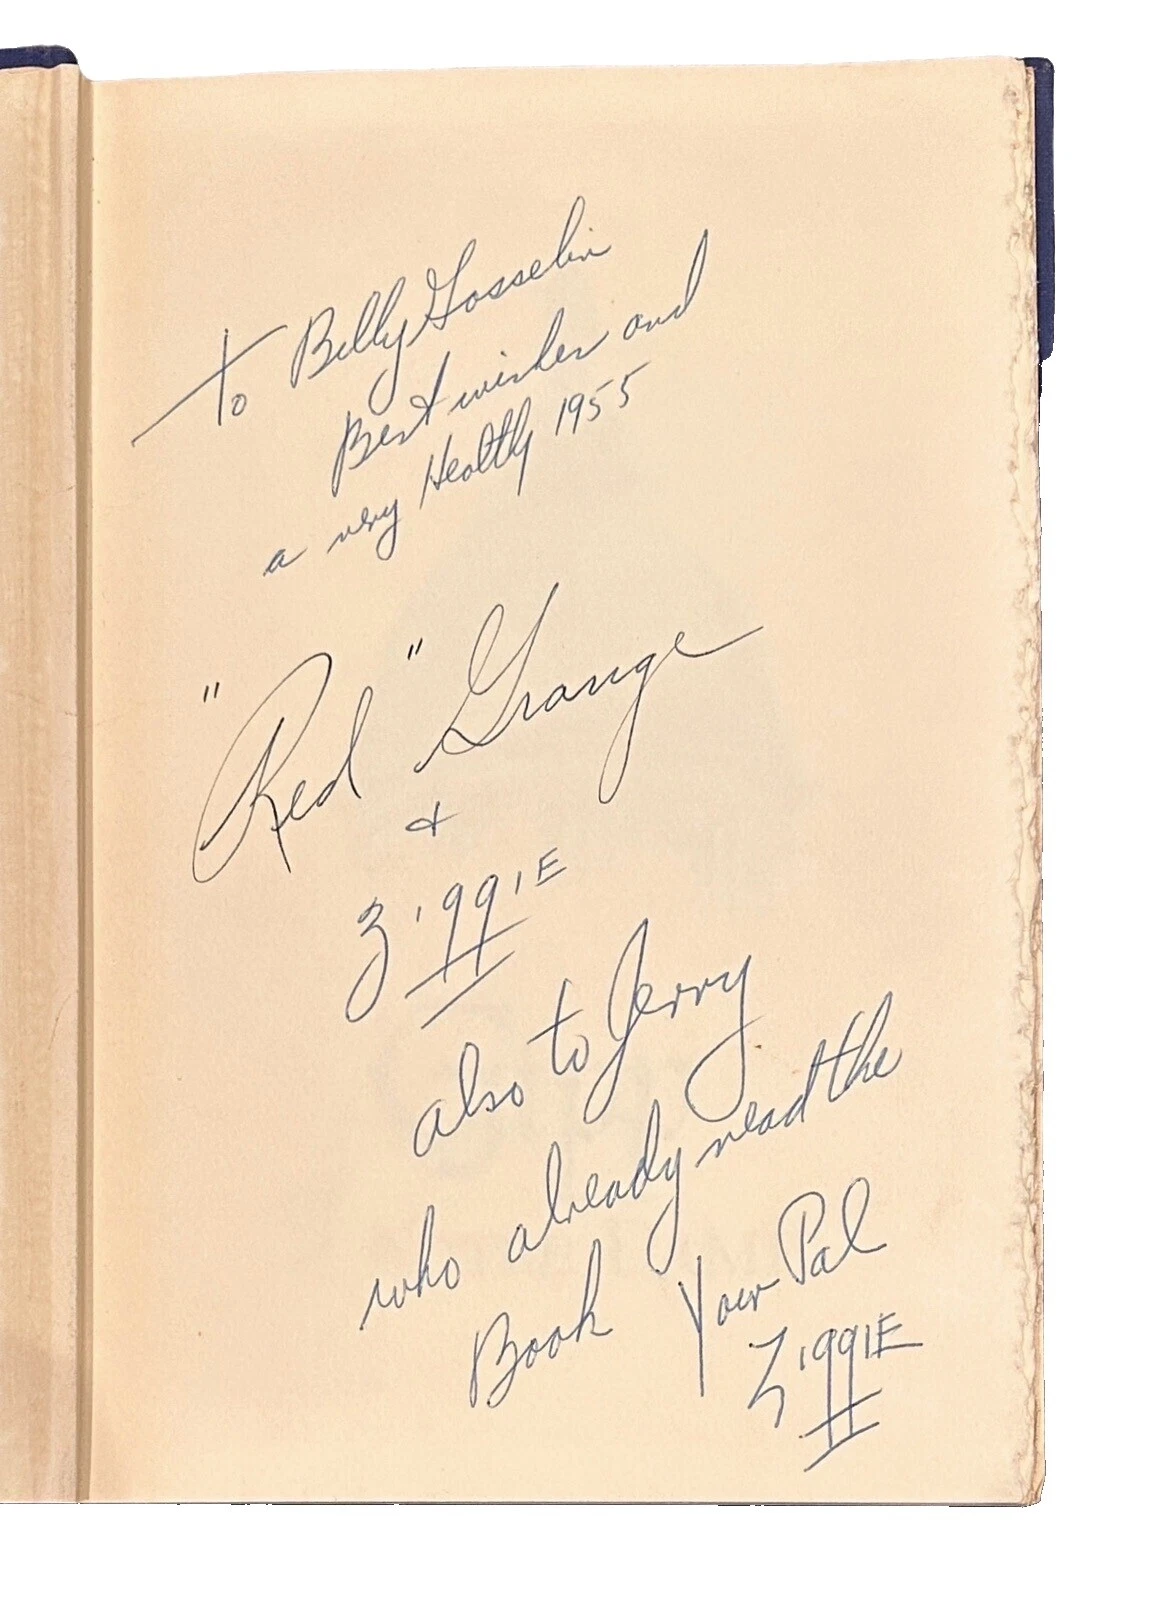 To Billy Gosselin
Best wishes and
a very Healthy 1955
"Red" Grange
+
Ziggie
also to Jerry
who already read the
Book Your Pal
Ziggie